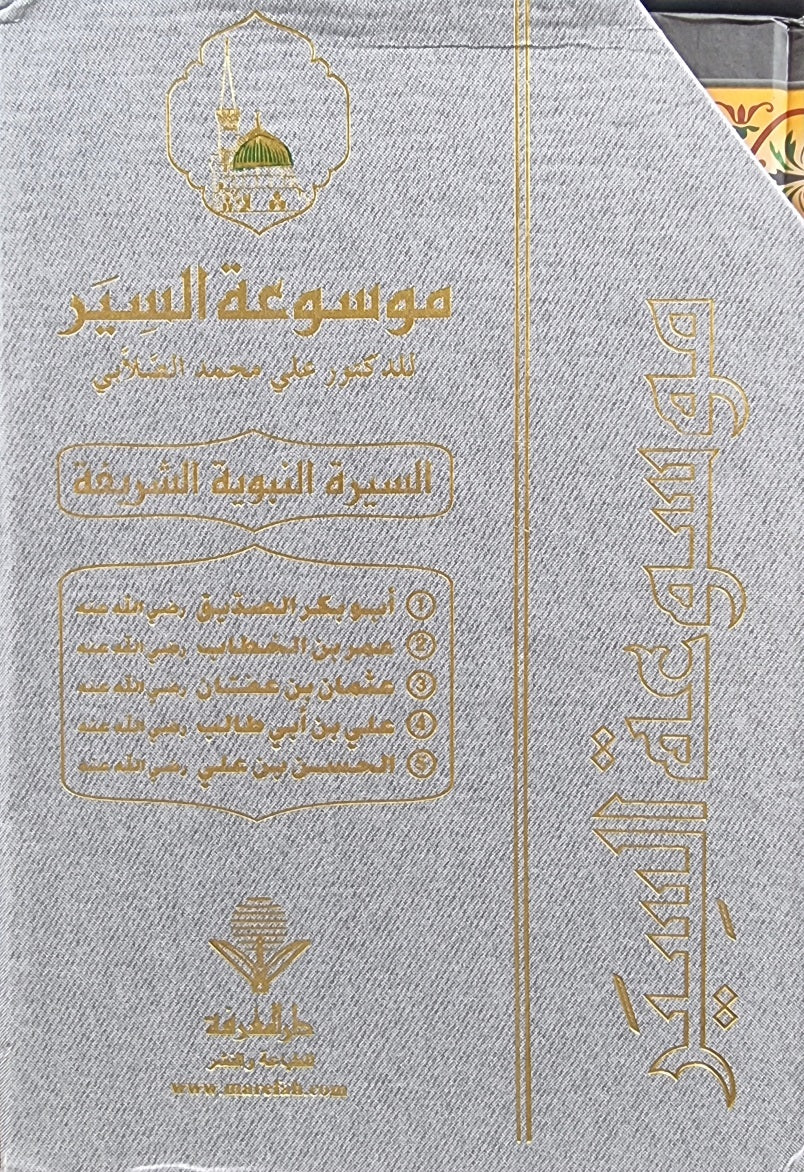 موسوعة السِيَر
للدكتور علي محمد الصَّلَّابي
السيرة النبوية الشريفة
1 أبو بكر الصديق رضي الله عنه
2 عمر بن الخطاب رضي الله عنه
3 عثمان بن عفَّان رضي الله عنه
4 علي بن أبي طالب رضي الله عنه
5 الحسن بن علي رضي الله عنه
دار المعرفة
للطباعة والنشر
www.marefah.com
موسوعة السِيَر